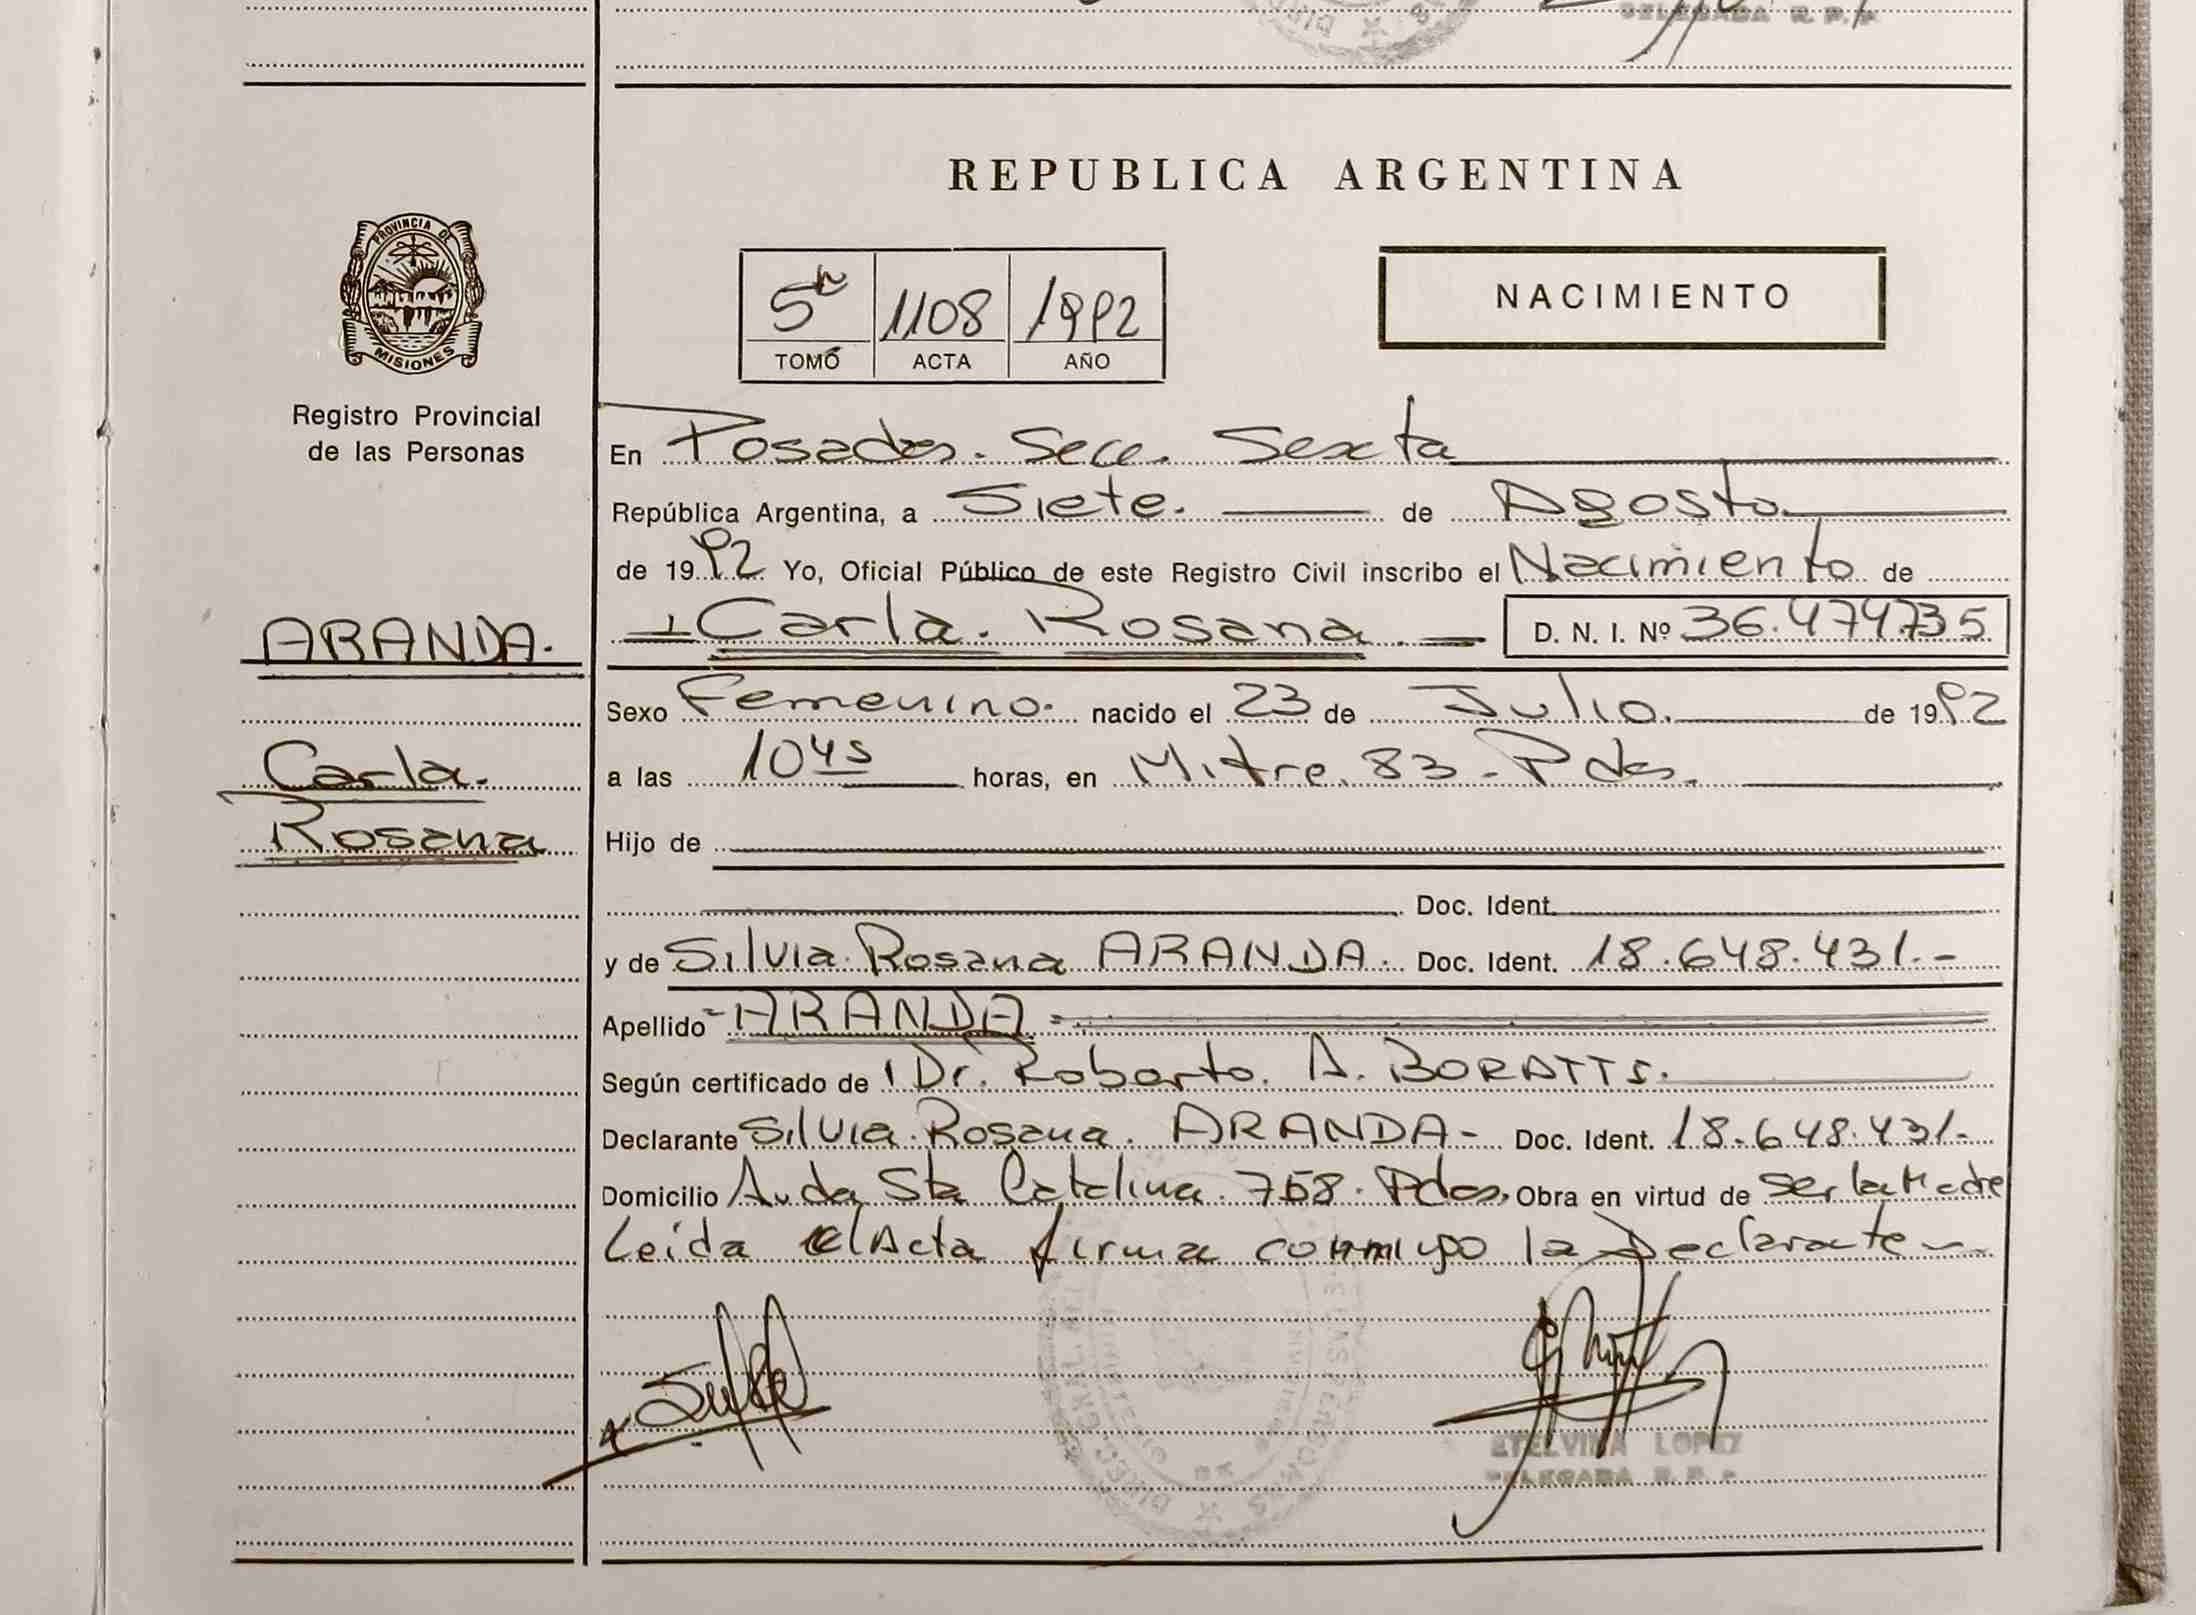 DELEGADA R. P. P.
REPUBLICA ARGENTINA
PROVINCIA DE
MISIONES
Registro Provincial
de las Personas
5to 1108 1992
TOMO ACTA AÑO
NACIMIENTO
En Posadas. Secc. Sexta
República Argentina, a Siete. de Agosto
de 1992 Yo, Oficial Público de este Registro Civil inscribo el Nacimiento de
ARANDA.
Carla. Rosana D. N. I. Nº 36.474.735
Sexo Femenino. nacido el 23 de Julio. de 1992
Carla.
Rosana
a las 1045 horas, en Mitre. 83 - Pdas.
Hijo de
Doc. Ident.
y de Silvia Rosana ARANDA. Doc. Ident. 18.648.431.-
Apellido ARANDA
Según certificado de Dr. Roberto. A. BORATTI.
Declarante Silvia. Rosana. ARANDA- Doc. Ident. 18.648.431.-
Domicilio Avda Sta Catalina. 758. Pdas. Obra en virtud de ser la Madre
Leída el Acta firma conmigo la Declarante
ETELVINA LOPEZ
DELEGADA R. P. P.